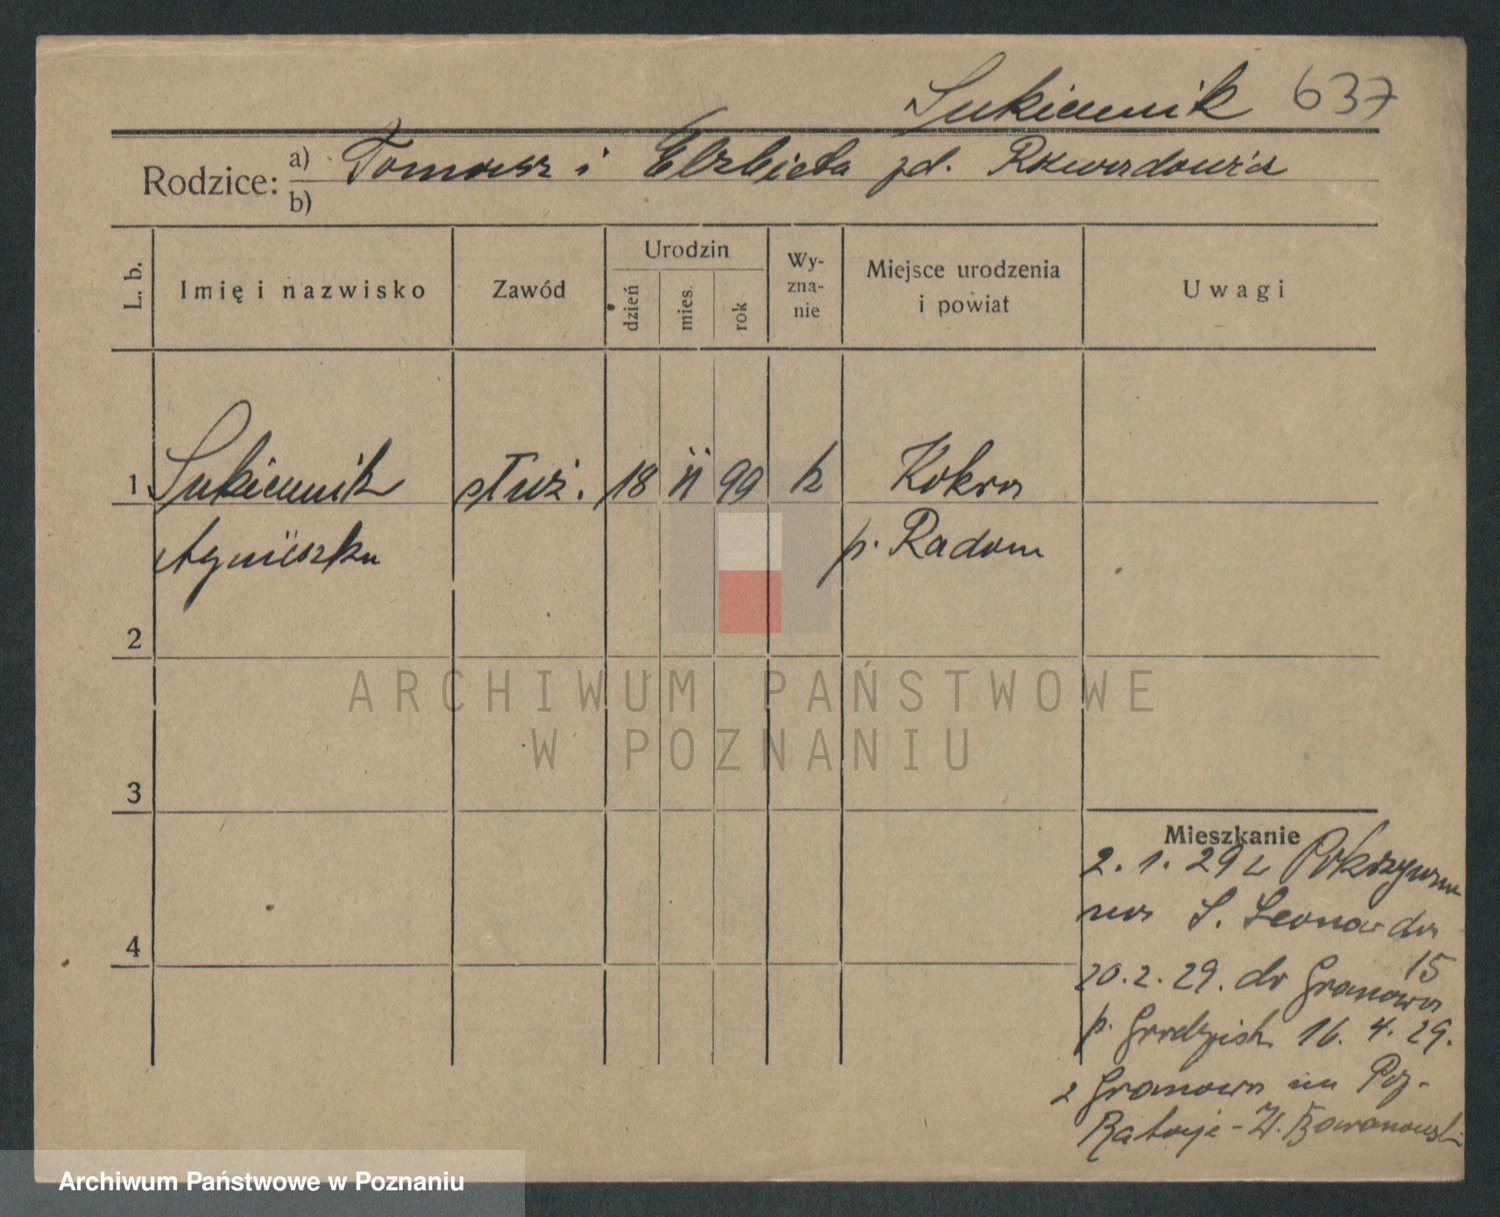 Sukiennik 637
Rodzice: a) Tomasz i Elżbieta zd.
b)
L. b.
Imię i nazwisko
Zawód
Urodzin
dzień
mies.
rok
Wy-
zna-
nie
Miejsce urodzenia
i powiat
Uwagi
1 Sukiennik służ. 18 II 99 k
Agnieszka p. Radom
2
3
4
Mieszkanie
2. 1. 29 z Pokrzywna
na S. Leonarda
15
20. 2. 29. do Granowa
p. Grodzisk 16. 4. 29.
z Granowa na Poz-
Rataje - W.
ARCHIWUM PAŃSTWOWE
W POZNANIU
Archiwum Państwowe w Poznaniu